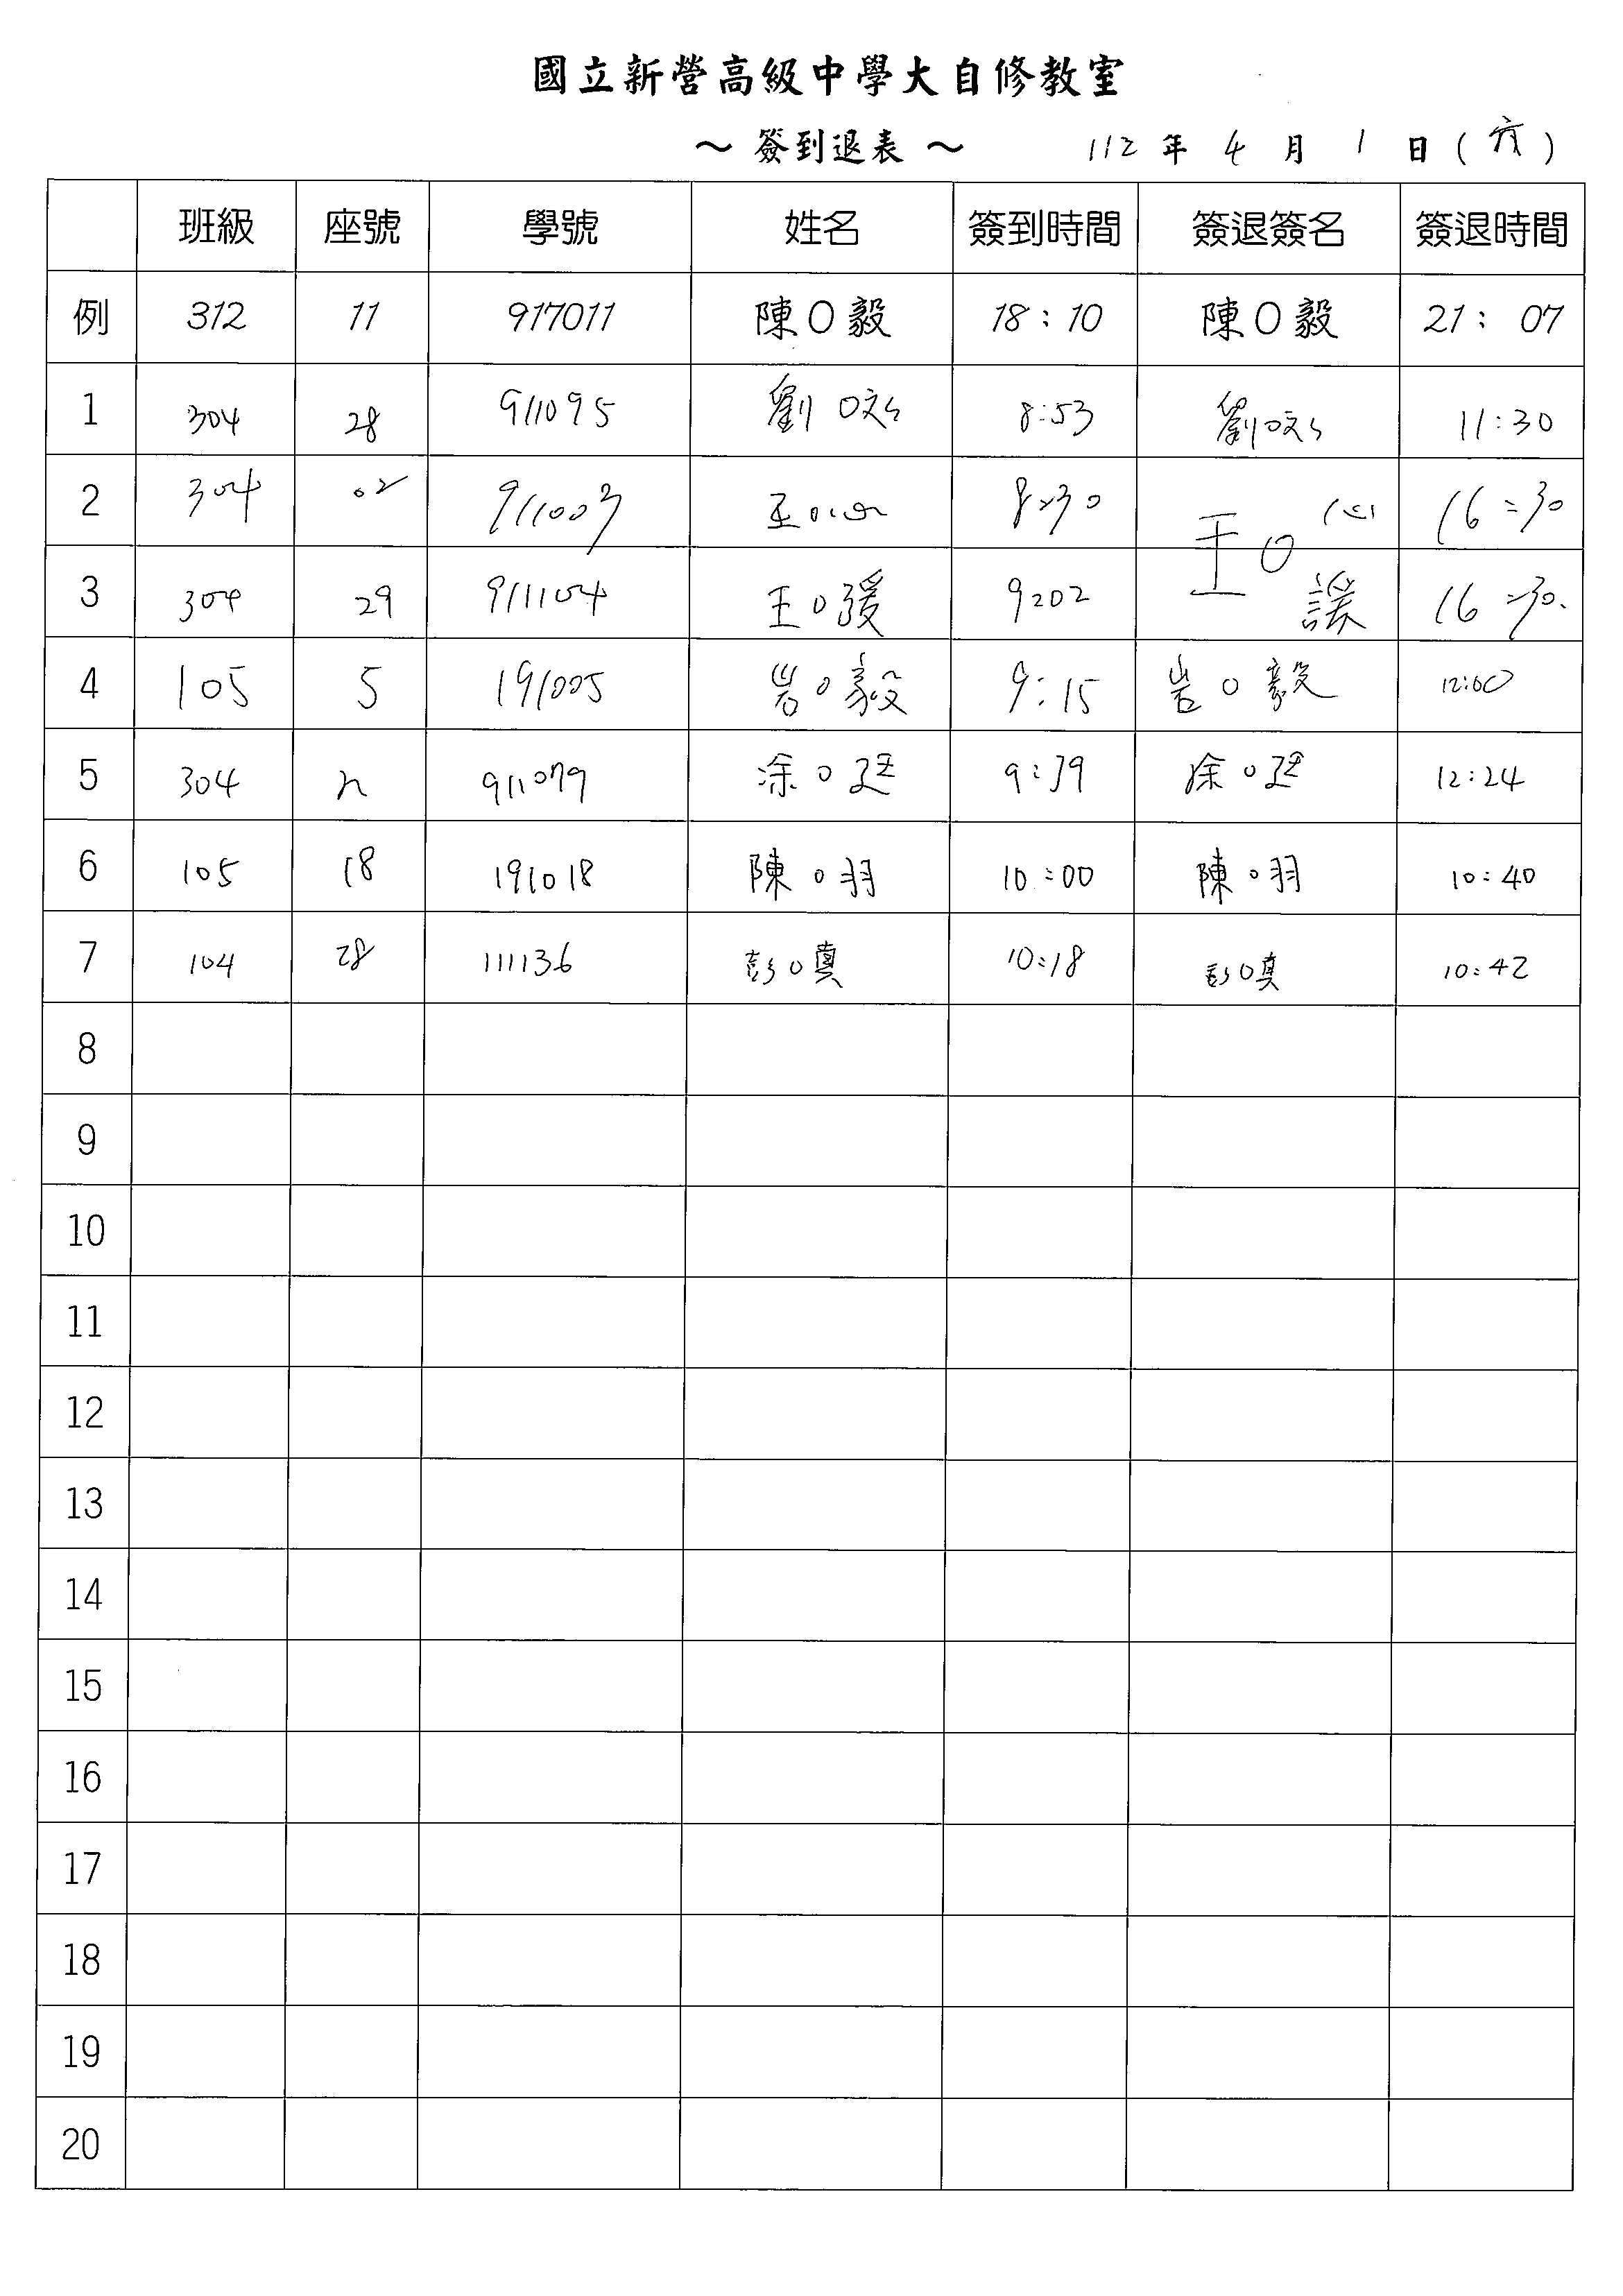 國立新營高級中學大自修教室
～ 簽到退表 ～ 112 年 4 月 1 日 ( 六 )
班級 座號 學號 姓名 簽到時間 簽退簽名 簽退時間
例 312 11 917011 陳O毅 18:10 陳O毅 21: 07
1 304 28 911095 劉O 8:53 劉O 11:30
2 304 02 911003 王O心 8:30 王O心 16:30
3 304 29 911104 王O 9:02 16:30
4 105 5 191005 岩O毅 9:15 岩O毅 12:00
5 304 911079 涂O廷 9:39 涂O廷 12:24
6 105 18 191018 陳O羽 10:00 陳O羽 10:40
7 104 28 111136 彭O真 10:18 彭O真 10:42
8
9
10
11
12
13
14
15
16
17
18
19
20